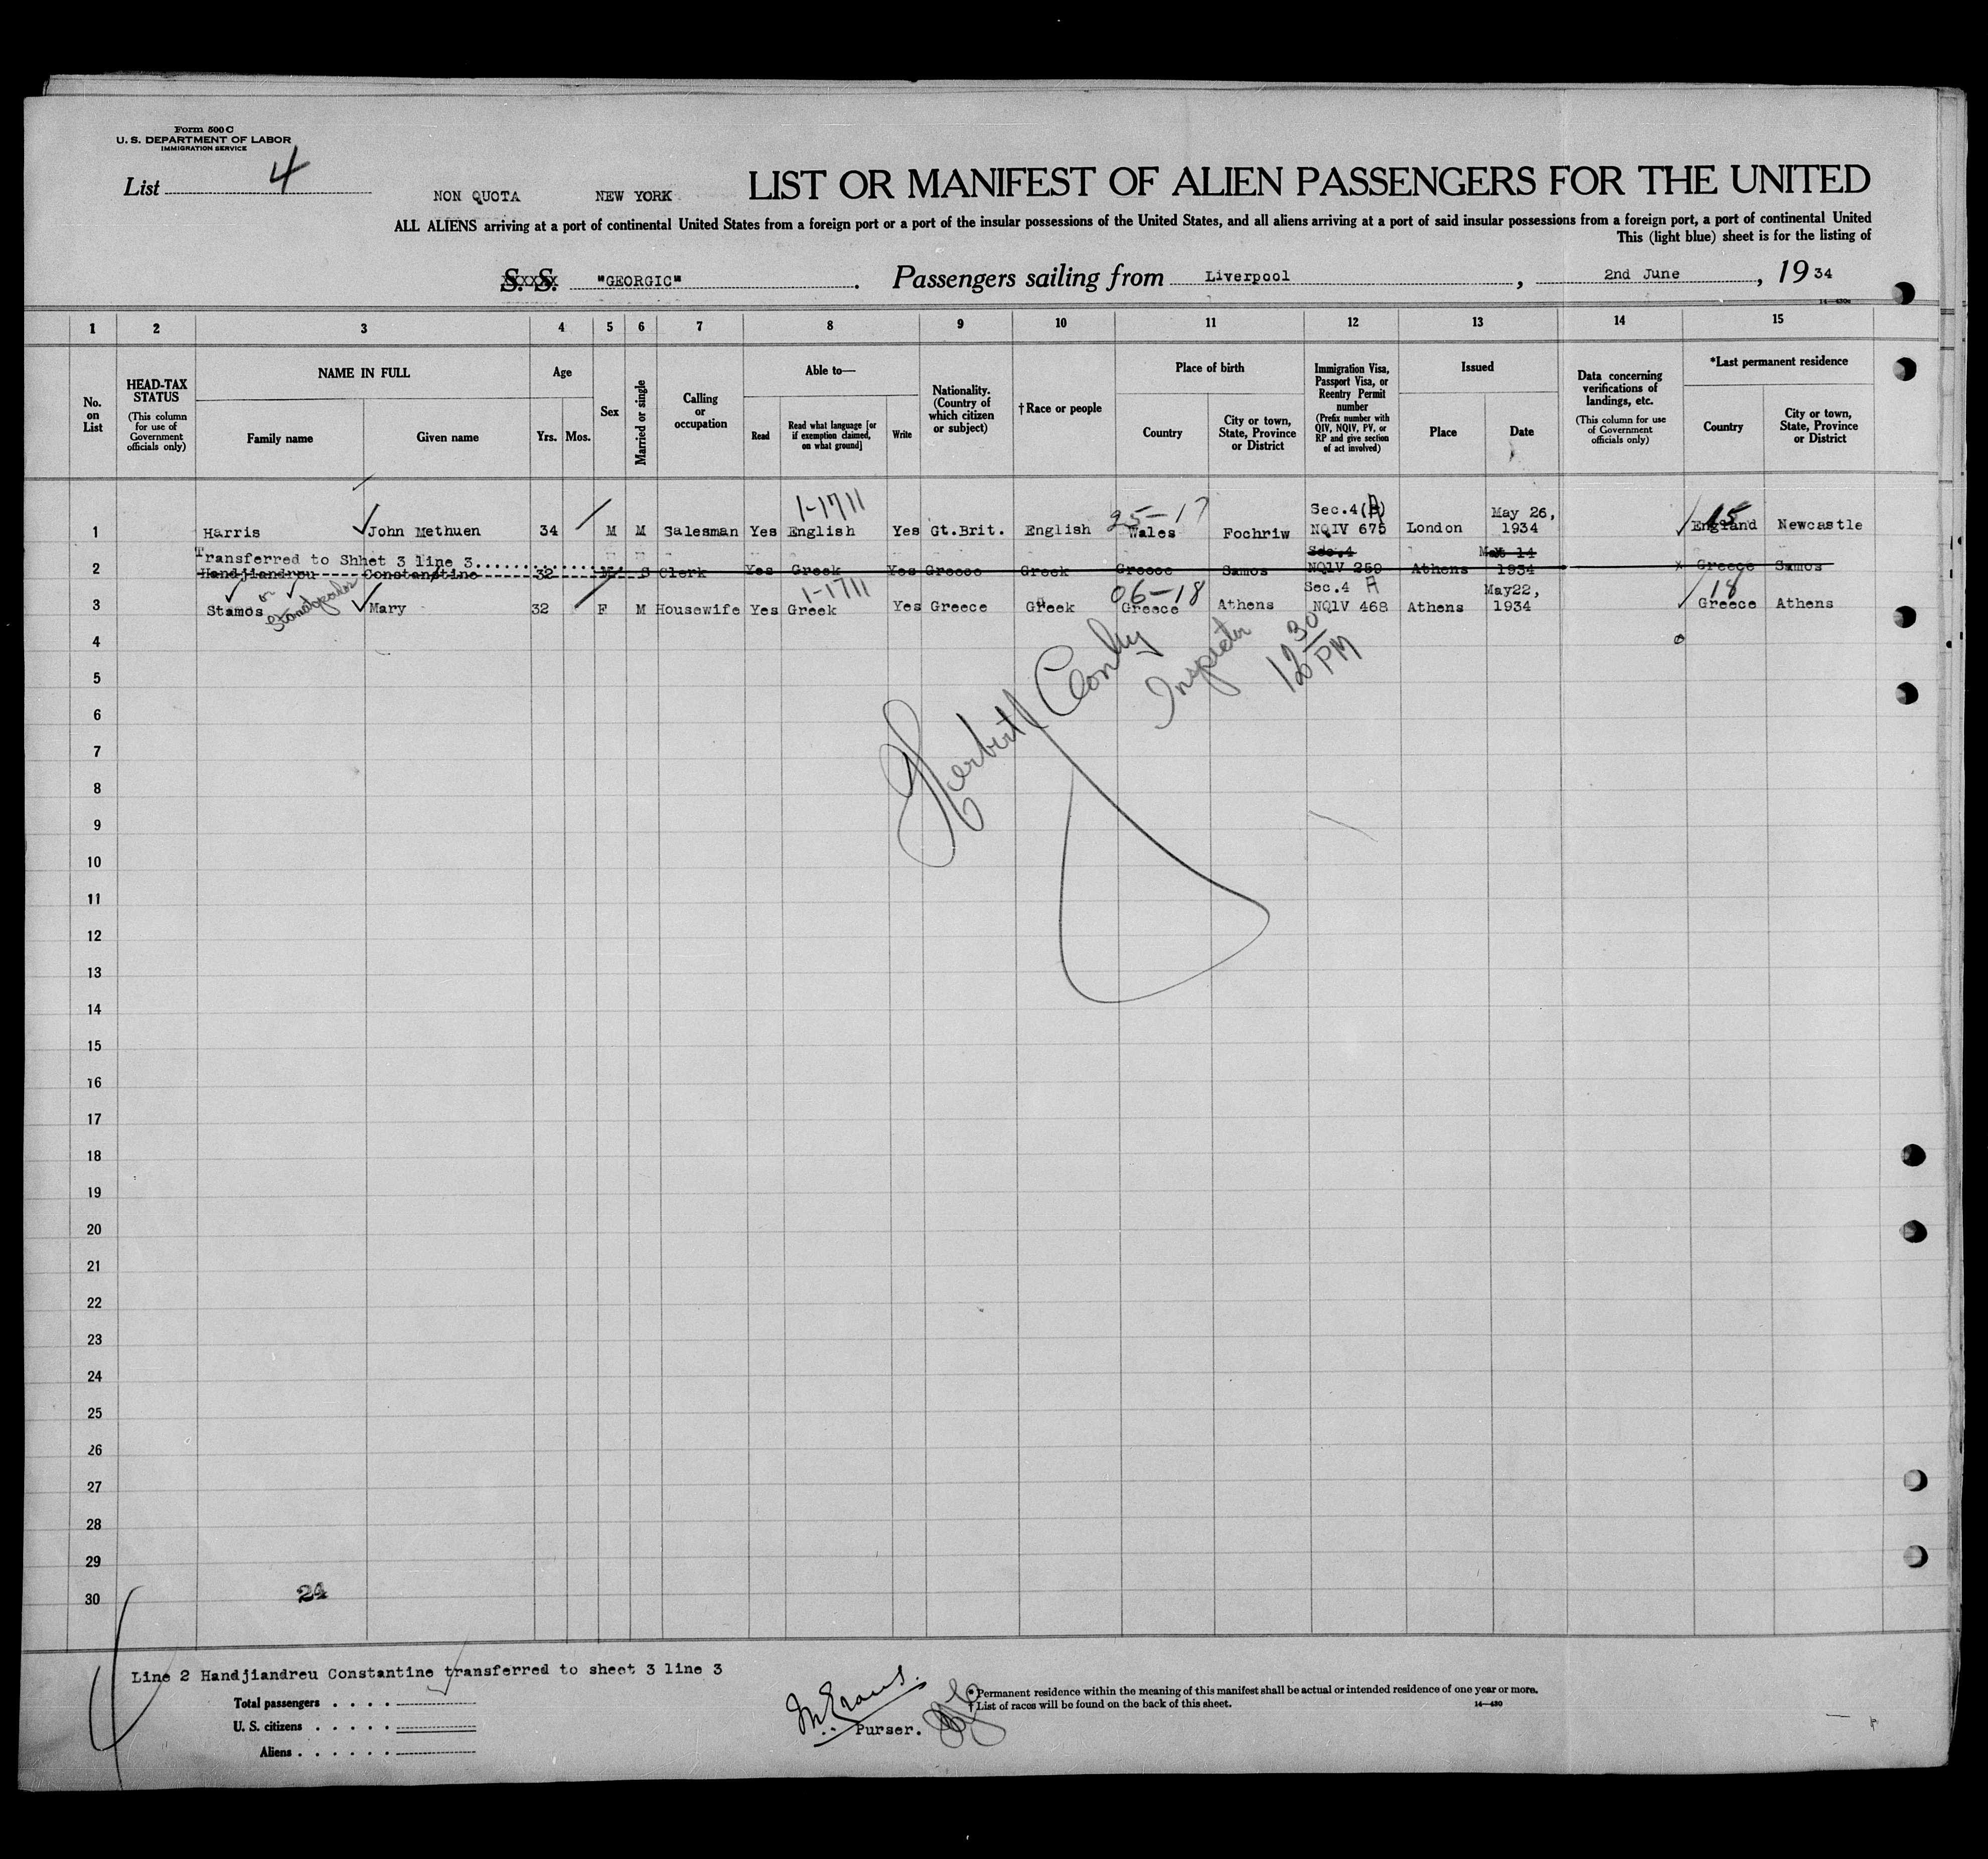 Form 500 C
U. S. DEPARTMENT OF LABOR
IMMIGRATION SERVICE
List 4
NON QUOTA NEW YORK LIST OR MANIFEST OF ALIEN PASSENGERS FOR THE UNITED
ALL ALIENS arriving at a port of continental United States from a foreign port or a port of the insular possessions of the United States, and all aliens arriving at a port of said insular possessions from a foreign port, a port of continental United
This (light blue) sheet is for the listing of
S. S. "GEORGIC". Passengers sailing from Liverpool, 2nd June, 1934
14—430c
1 2 3 4 5 6 7 8 9 10 11 12 13 14 15
No. on List
HEAD-TAX STATUS (This column for use of Government officials only)
NAME IN FULL
Family name Given name
Age
Yrs. Mos.
Sex
Married or single
Calling or occupation
Able to—
Read Read what language [or if exemption claimed, on what ground] Write
Nationality. (Country of which citizen or subject)
†Race or people
Place of birth
Country City or town, State, Province or District
Immigration Visa, Passport Visa, or Reentry Permit number (Prefix number with QIV, NQIV, PV, or RP and give section of act involved)
Issued
Place Date
Data concerning verifications of landings, etc. (This column for use of Government officials only)
*Last permanent residence
Country City or town, State, Province or District
1-1711 25-17 Sec.4(A) May 26, 15
1 Harris John Methuen 34 M M Salesman Yes English Yes Gt.Brit. English Wales Fochriw NQIV 675 London 1934 England Newcastle
Transferred to Shhet 3 line 3 Sec.4 May 14
2 Handjiandreu Constantine 32 M S Clerk Yes Greek Yes Greece Greek Greece Samos NQ1V 259 Athens 1934 Greece Samos
or 1-1711 06-18 Sec.4 A May22, 18
3 Stamos Mary 32 F M Housewife Yes Greek Yes Greece Greek Greece Athens NQ1V 468 Athens 1934 Greece Athens
4
5
6
7
8
9
10
11
12
13
14
15
16
17
18
19
20
21
22
23
24
25
26
27
28
29
30
Herbert Conly
Inspector
12 30 PM
24
Line 2 Handjiandreu Constantine transferred to sheet 3 line 3
Total passengers
U. S. citizens
Aliens
M. Evans.
Purser.
* Permanent residence within the meaning of this manifest shall be actual or intended residence of one year or more.
† List of races will be found on the back of this sheet. 14—430